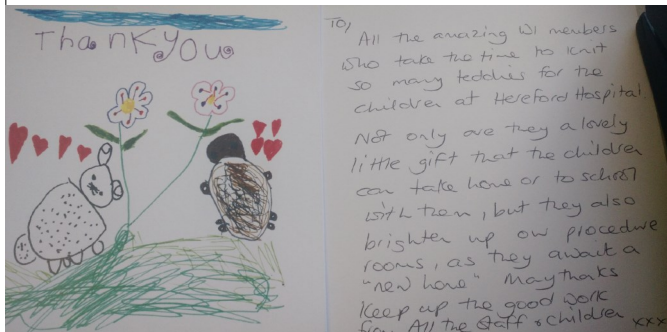 Thankyou
To,
All the amazing WI members
who take the time to knit
so many teddies for the
children at Hereford Hospital.
Not only are they a lovely
little gift that the children
can take home or to school
with them, but they also
brighten up our procedure
rooms, as they await a
"new home" May thanks
Keep up the good work
from All the Staff & children xxx